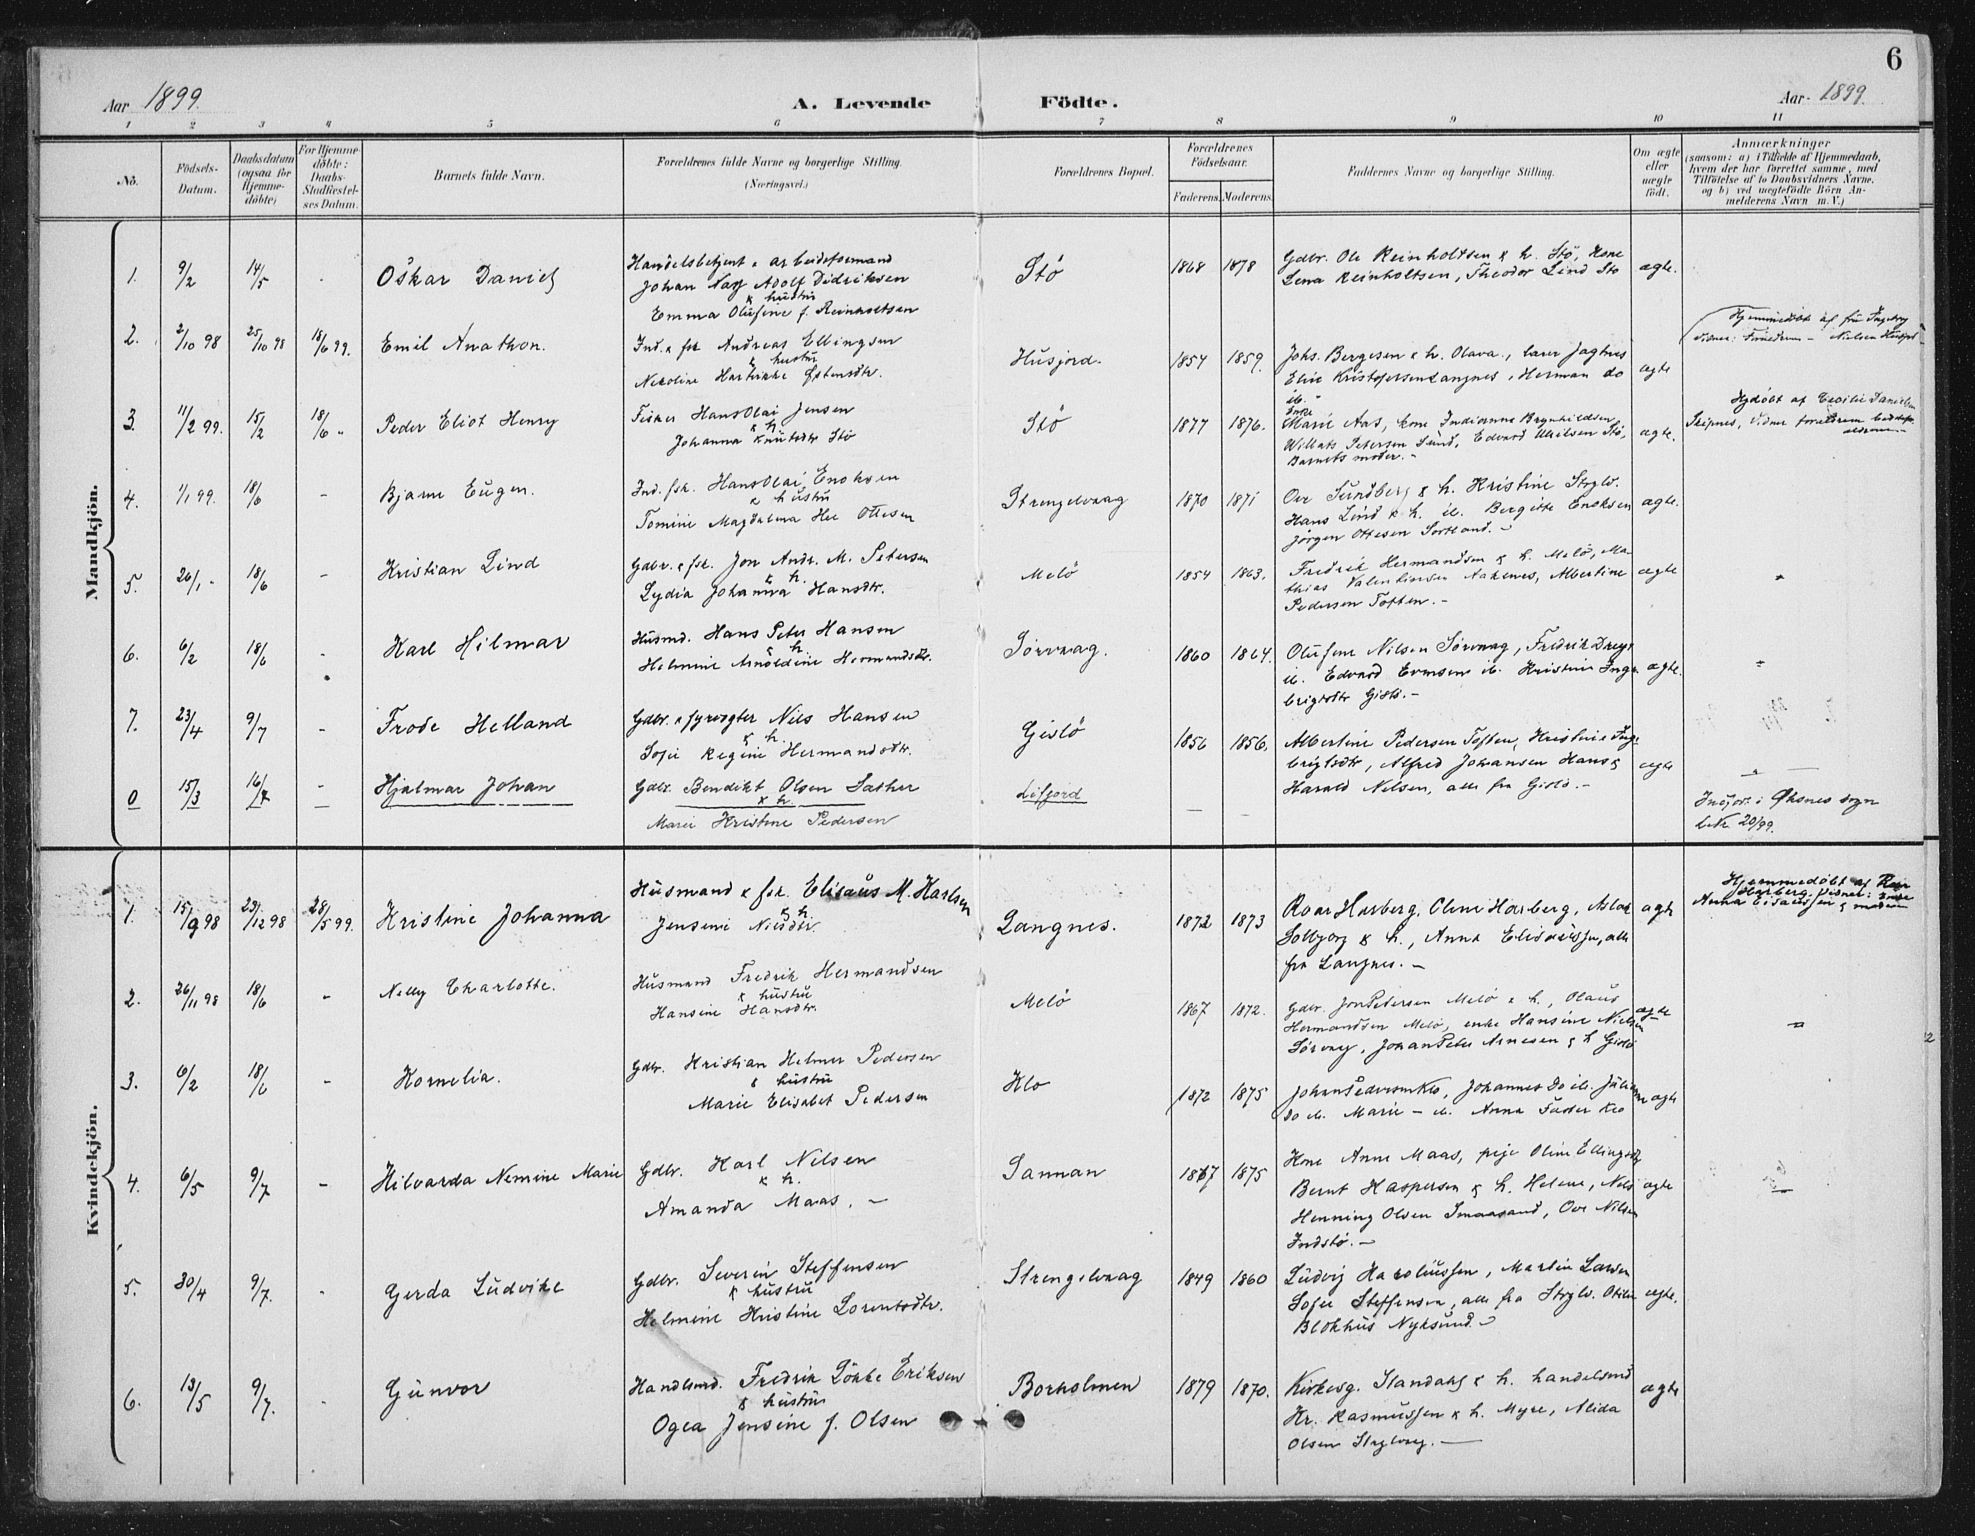 6
Aar 1899.
A. Levende Födte.
Aar 1899.
1 2 3 4 5 6 7 8 9 10 11
No.
Födsels-Datum.
Daabsdatum (ogsaa for Hjemme-döbte)
For Hjemme-döbte: Daabs-Stadfæstel-ses Datum.
Barnets fulde Navn.
Forældrenes fulde Navne og borgerlige Stilling.
(Næringsvei.)
Forældrenes Bopæl.
Forældrenes Födselsaar.
Faderens. Moderens.
Faddernes Navne og borgerlige Stilling.
Om ægte eller uægte födt.
Anmærkninger
(saasom: a) i Tilfælde af Hjemmedaab,
hvem der har forrettet samme, med
Tilföielse af to Daabsvidners Navne,
og b) ved uægtefödte Börn An-
melderens Navn m. V.)
Mandkjön.
1. 9/2 14/5 - Oskar Daniel
Handelsbetjent & arbeidsformand
Johan Adolf Didriksen
& hustru
Emma Olufine f. Reinholtsen
Stö 1868 1878
Gdbr. Ole Reinholtsen & h. Stö, Kone
Lena Reinholtsen, Theodor Lind Stö
ægte.
2. 2/10 98 25/10 98 18/6 99. Emil Anathon.
Ind. & fsk Andreas Ellingsen
& hustru
Nikoline Hartvikke Östensdtr.
Husjord. 1857 1859.
Johs. Bergesen & h. Olava, lærer Jagtnes
Elise Kristofersen Langnes, Herman do
ib.
ægte
Hjemmedöbt af fru Ingeborg
Vidner: Forældrene - Nielsen Husjord
3. 11/2 99. 15/2 18/6 " Peder Eliot Henry
Fisker Hans Olai Jensen
& h.
Johanna Knutsdtr Stö
Stö 1877 1876.
Enke
Marie Aas, kone Indianna Brynhildsen
Willats Petersen Lund, Edvard Nilsen Stö,
Barnets moder. -
ægte.
Hjdöbt af Cecilie Danielsen
Skipnes, Vidner forældrene
4. 1/1 99. 18/6 - Bjarne Eugen.
Ind. fsk. Hans Olai Enoksen
& hustru
Tomine Magdalena Ottesen
Strengelvaag 1870 1871
Ove Sundberg & h. Kristine Strglv.
Hans Lind & h. ib. Bergitte Enoksen
Jörgen Ottesen Sortland. -
ægte.
5. 26/1 - 18/6 - Kristian Lind
Gdbr. & fsk. Jon Andr. M. Petersen
& h.
Lydia Johanna Hansdtr.
Melö 1854 1863.
Fredrik Hermandsen & h. Melö, Ma-
thias Valentinsen Aaknes, Albertine
Pedersen Toften. -
ægte
6. 6/2 18/6 - Karl Hilmar
Husmd. Hans Peter Hansen
& h.
Helmine Arnoldine Hermandsdtr.
Sörvaag. 1860 1864.
Olufine Nilsen Sörvaag, Fredrik Dreyer
ib. Edvard Evensen ib. Kristine Inge-
brigtsdtr Gislö. -
ægte.
7. 23/4 9/7 - Frode Helland
Gdbr. & fyrvogter Nils Hansen
& h.
Sofie Regine Hermandsdtr.
Gislö 1856 1856.
Albertine Pedersen Toften, Kristine Inge-
brigtsdtr, Alfred Johansen Hans &
Harald Nilsen, alle fra Gislö. -
ægte
0 15/3 16/7 - Hjalmar Johan
Gdbr. Bendikt Olsen Sæther
& h.
Marie Kristine Pedersen
Lifjord -
Indför. i Öksnes sogn
L. Nr 20/99.
Kvindekjön.
1. 15/9 98 23/12 98 28/5 99. Kristine Johanna
Husmand & fsk. Elisæus M. Karlsen
& h.
Jensine Nilsdtr.
Langnes. 1872 1873
Roar Harberg, Oline Harberg, Aslak
Solbjorg & h., Anna Elisæussen, alle
fra Langnes. -
ægte
Hjemmedöbt af Roar
Harberg. Vidner:
Anna Elisæussen & moderen
2. 26/11 98 18/6 - Nelly Charlotte.
Husmand Fredrik Hermandsen
& hustru
Hansine Hansdtr.
Melö 1867 1872.
Gdbr. Jon Petersen Melö & h., Olaus
Hermandsen Melö, enke Hansine Nielsen
Sörvaag, Johan Peter Arnesen & h Gislö
ægte
3. 6/2 18/6 - Kornelia.
Gdbr. Kristian Helmer Pedersen
& hustru
Marie Elisabet Pedersen
Klo 1872 1875
Johan Pedersen Klo, Johannes do ib. Juliane
do ib. Marie - ib. Anna Klo
ægte
4. 6/5 9/7 - Hilvarda Nemine Marie
Gdbr. Karl Nilsen
& h.
Amanda Maas. -
Sannan 1867 1875
Kone Anne Maas, pige Oline Ellingsen
Bernt Kaspersen & h. Helene, Nils
Henning Olsen Smaasund, Ove Nilsen
Indstö. -
ægte
5. 30/4 9/7. - Gerda Ludvike
Gdbr. Severin Steffensen
& hustru
Helmine Kristine Lorentsdtr.
Strengelvaag 1849 1860
Ludvig Haroliussen, Martin Larsen
Sofie Steffensen, alle fra Strglv. Otilie
Blokhus Nyksund. -
ægte.
6. 13/5 9/7. - Gunvor
Handlsmd. Fredrik Lökke Eriksen
& hustru
Ogea Jensine f. Olsen
Borholmen 1879 1870.
Kirkesg. Standahl & h. handelsmd
Kr. Rasmussen & h. Myre, Alida
Olsen Strglvag. -
ægte